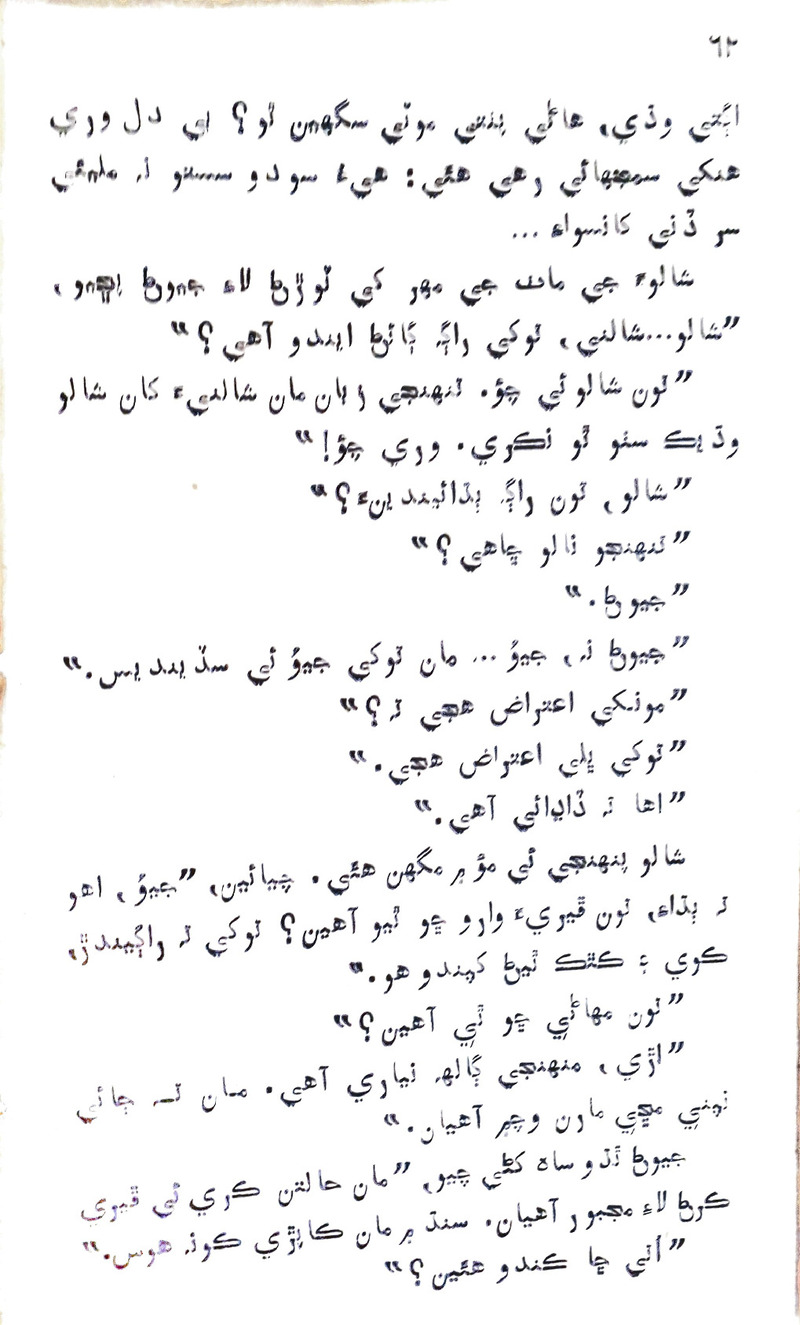 ٦٢
اڳتي وڌي، هاڻي پنتي موٽي سگهين ٿو؟ اي دل وري
هنکي سمجهائي رهي هئي: هيءُ سودو سستو نہ ملندئي
سر ڏني کانسواءِ...
شالوءَ جي ماٺ جي مهر کي ٽوڙڻ لاءِ جيوڻ پڇيو،
”شالو...شالني، توکي راڳہ ڳائڻ ايندو آهي؟“
”تون شالو ئي چؤ. تنهنجي زبان مان شالنيءَ کان شالو
وڌيڪ سٺو ٿو نڪري. وري چؤ!“
”شالو، تون راڳہ ٻڌائيندينءَ؟“
”تنهنجو نالو ڇاهي؟“
”جيوڻ.“
”جيوڻ نہ، جيؤ... مان توکي جيؤ ئي سڏيندينس.“
”مونکي اعتراض هجي تہ؟“
”توکي ڀلي اعتراض هجي.“
”اها تہ ڏاڍائي آهي.“
شالو پنهنجي ئي مؤ ۾ مگهن هئي. چيائين، ”جيؤ، اهو
تہ ٻڌاءِ، تون ڦيريءَ وارو ڇو ٿيو آهين؟ توکي تہ راڳيندڙ،
ڪوي ۽ ڪٿڪ ٿيڻ کپندو هو.“
”تون مهاڻي ڇو ٿي آهين؟“
”اڙي، منهنجي ڳالهہ نياري آهي. مان تہ ڄائي
نپني مڇي مارن وچ۾ آهيان.“
جيوڻ ٿڌو ساھ کڻي چيو، ”مان حالتن ڪري ئي ڦيري
ڪرڻ لاءِ مجبور آهيان. سنڌ ۾ مان ڪاٻڙي ڪونہ هوس.“
”اتي ڇا ڪندو هئين؟“